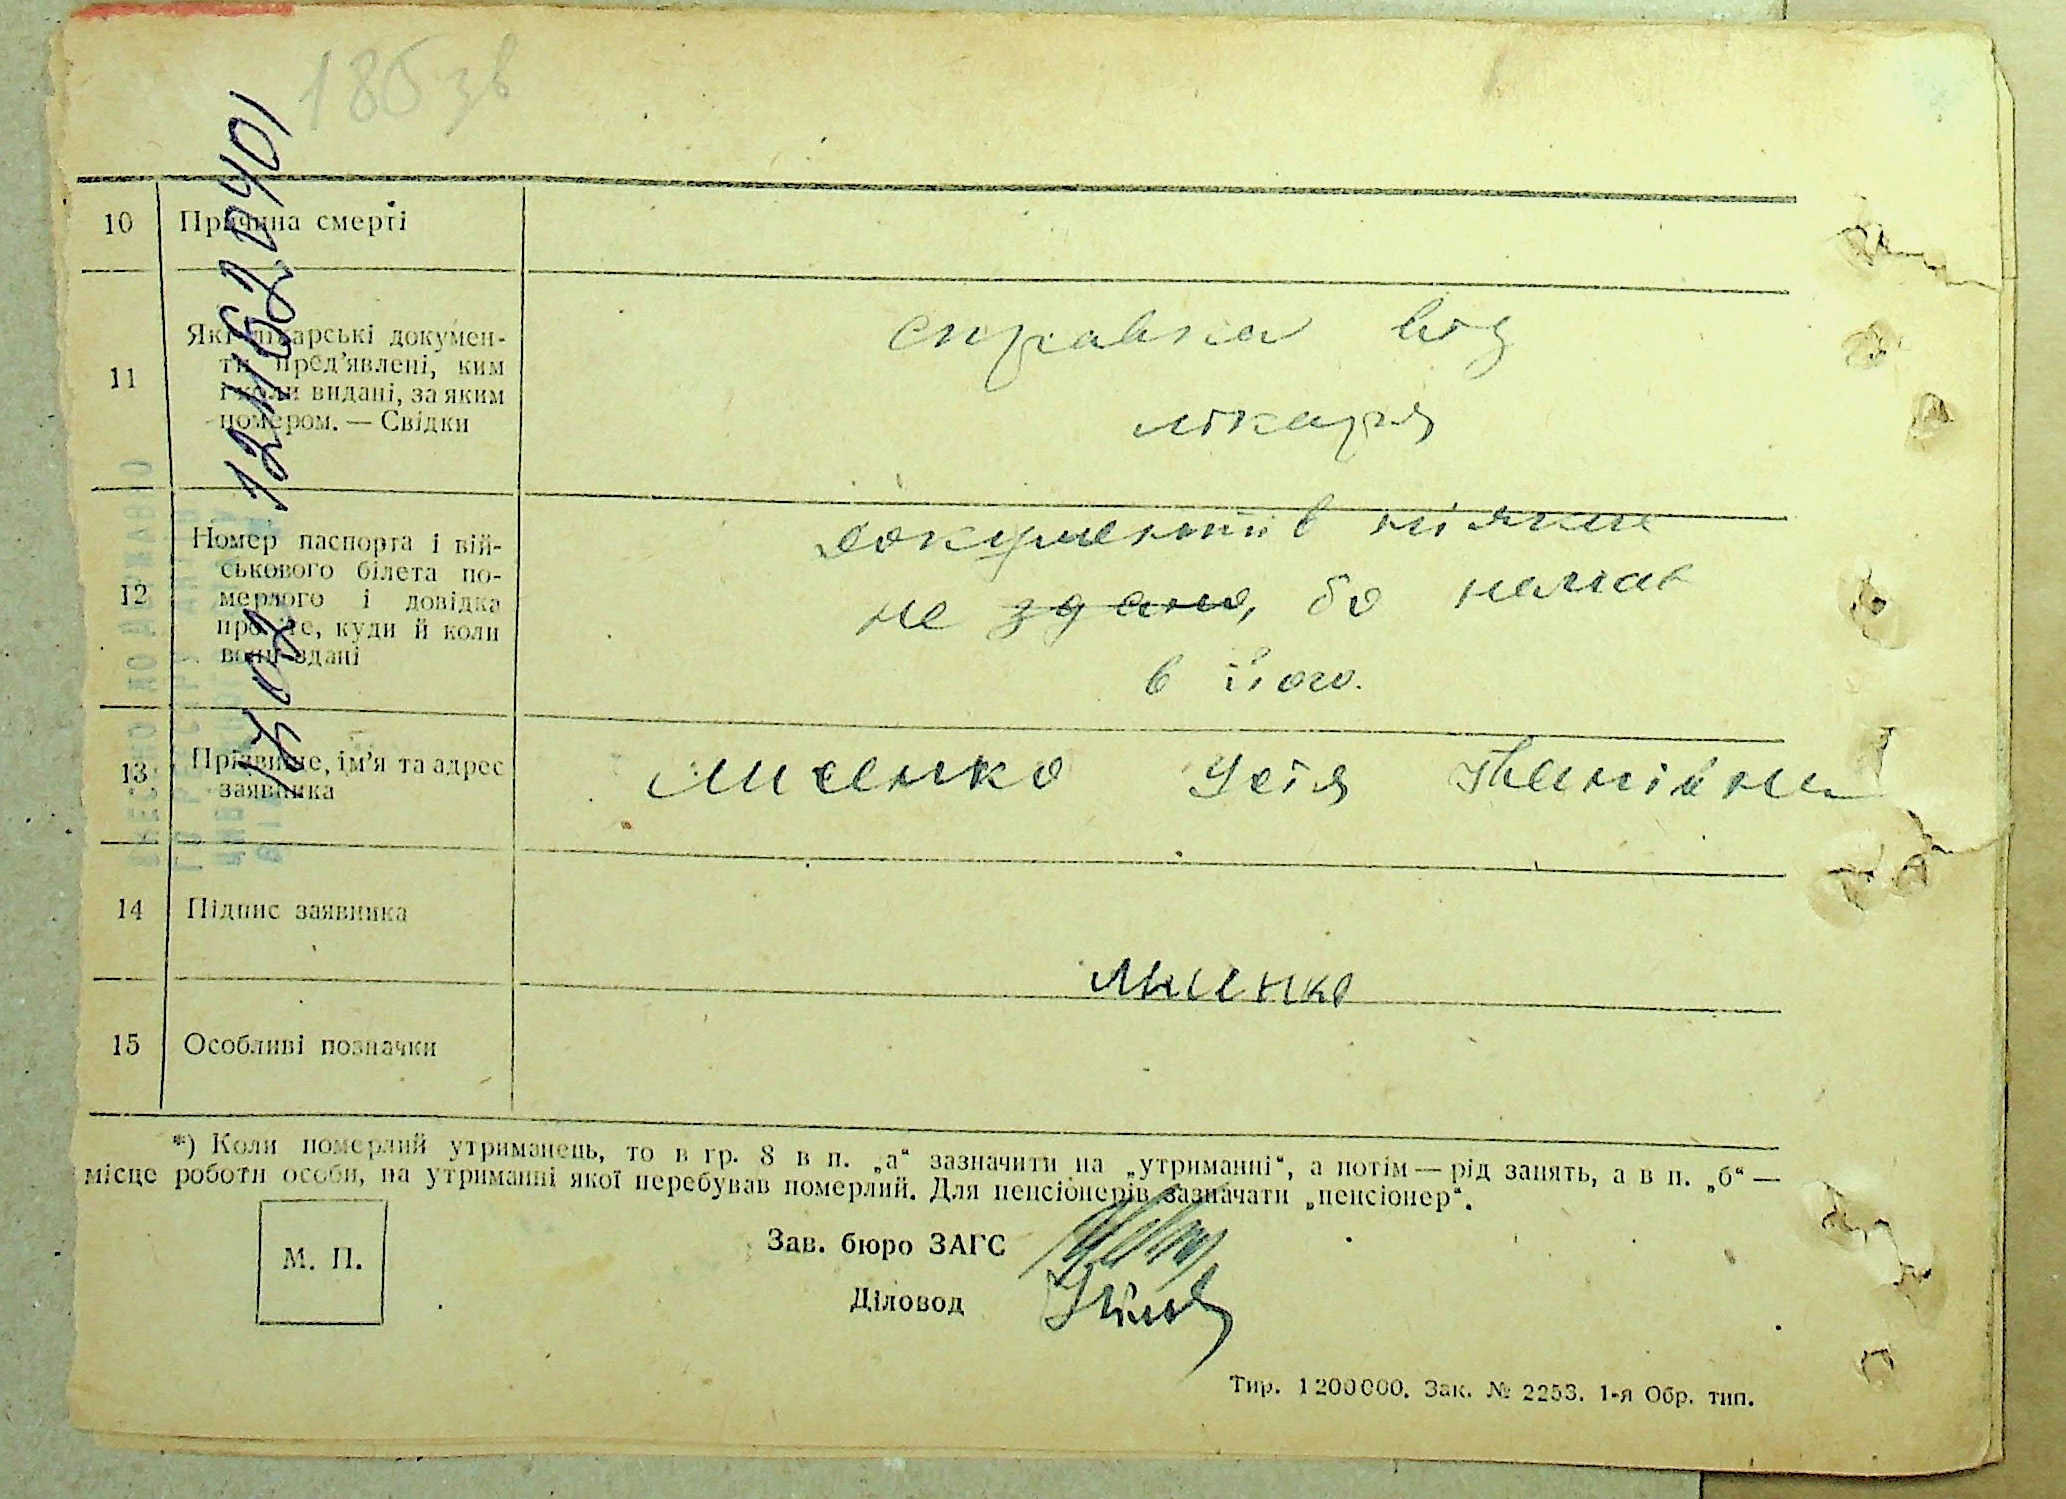 186 зв
10 Причина смерті
11 Які лікарські докумен-
ти пред'явлені, ким
і коли видані, за яким
номером. — Свідки
справка від
лікаря
12 Номер паспорта і вій-
ськового білета по-
мерлого і довідка
про те, куди й коли
вони здані
документів ніяких
не здано, бо немає
в його.
13 Прізвище, ім'я та адрес
заявника
Лисенко Устя Іванівна
14 Підпис заявника
Лисенко
15 Особливі позначки
*) Коли померлий утриманець, то в гр. 8 в п. „а“ зазначити на „утриманні“, а потім — рід занять, а в п. „б“ —
місце роботи особи, на утриманні якої перебував померлий. Для пенсіонерів зазначати „пенсіонер“.
М. П.
Зав. бюро ЗАГС
Діловод
Тир. 1200000. Зак. № 2253. 1-я Обр. тип.